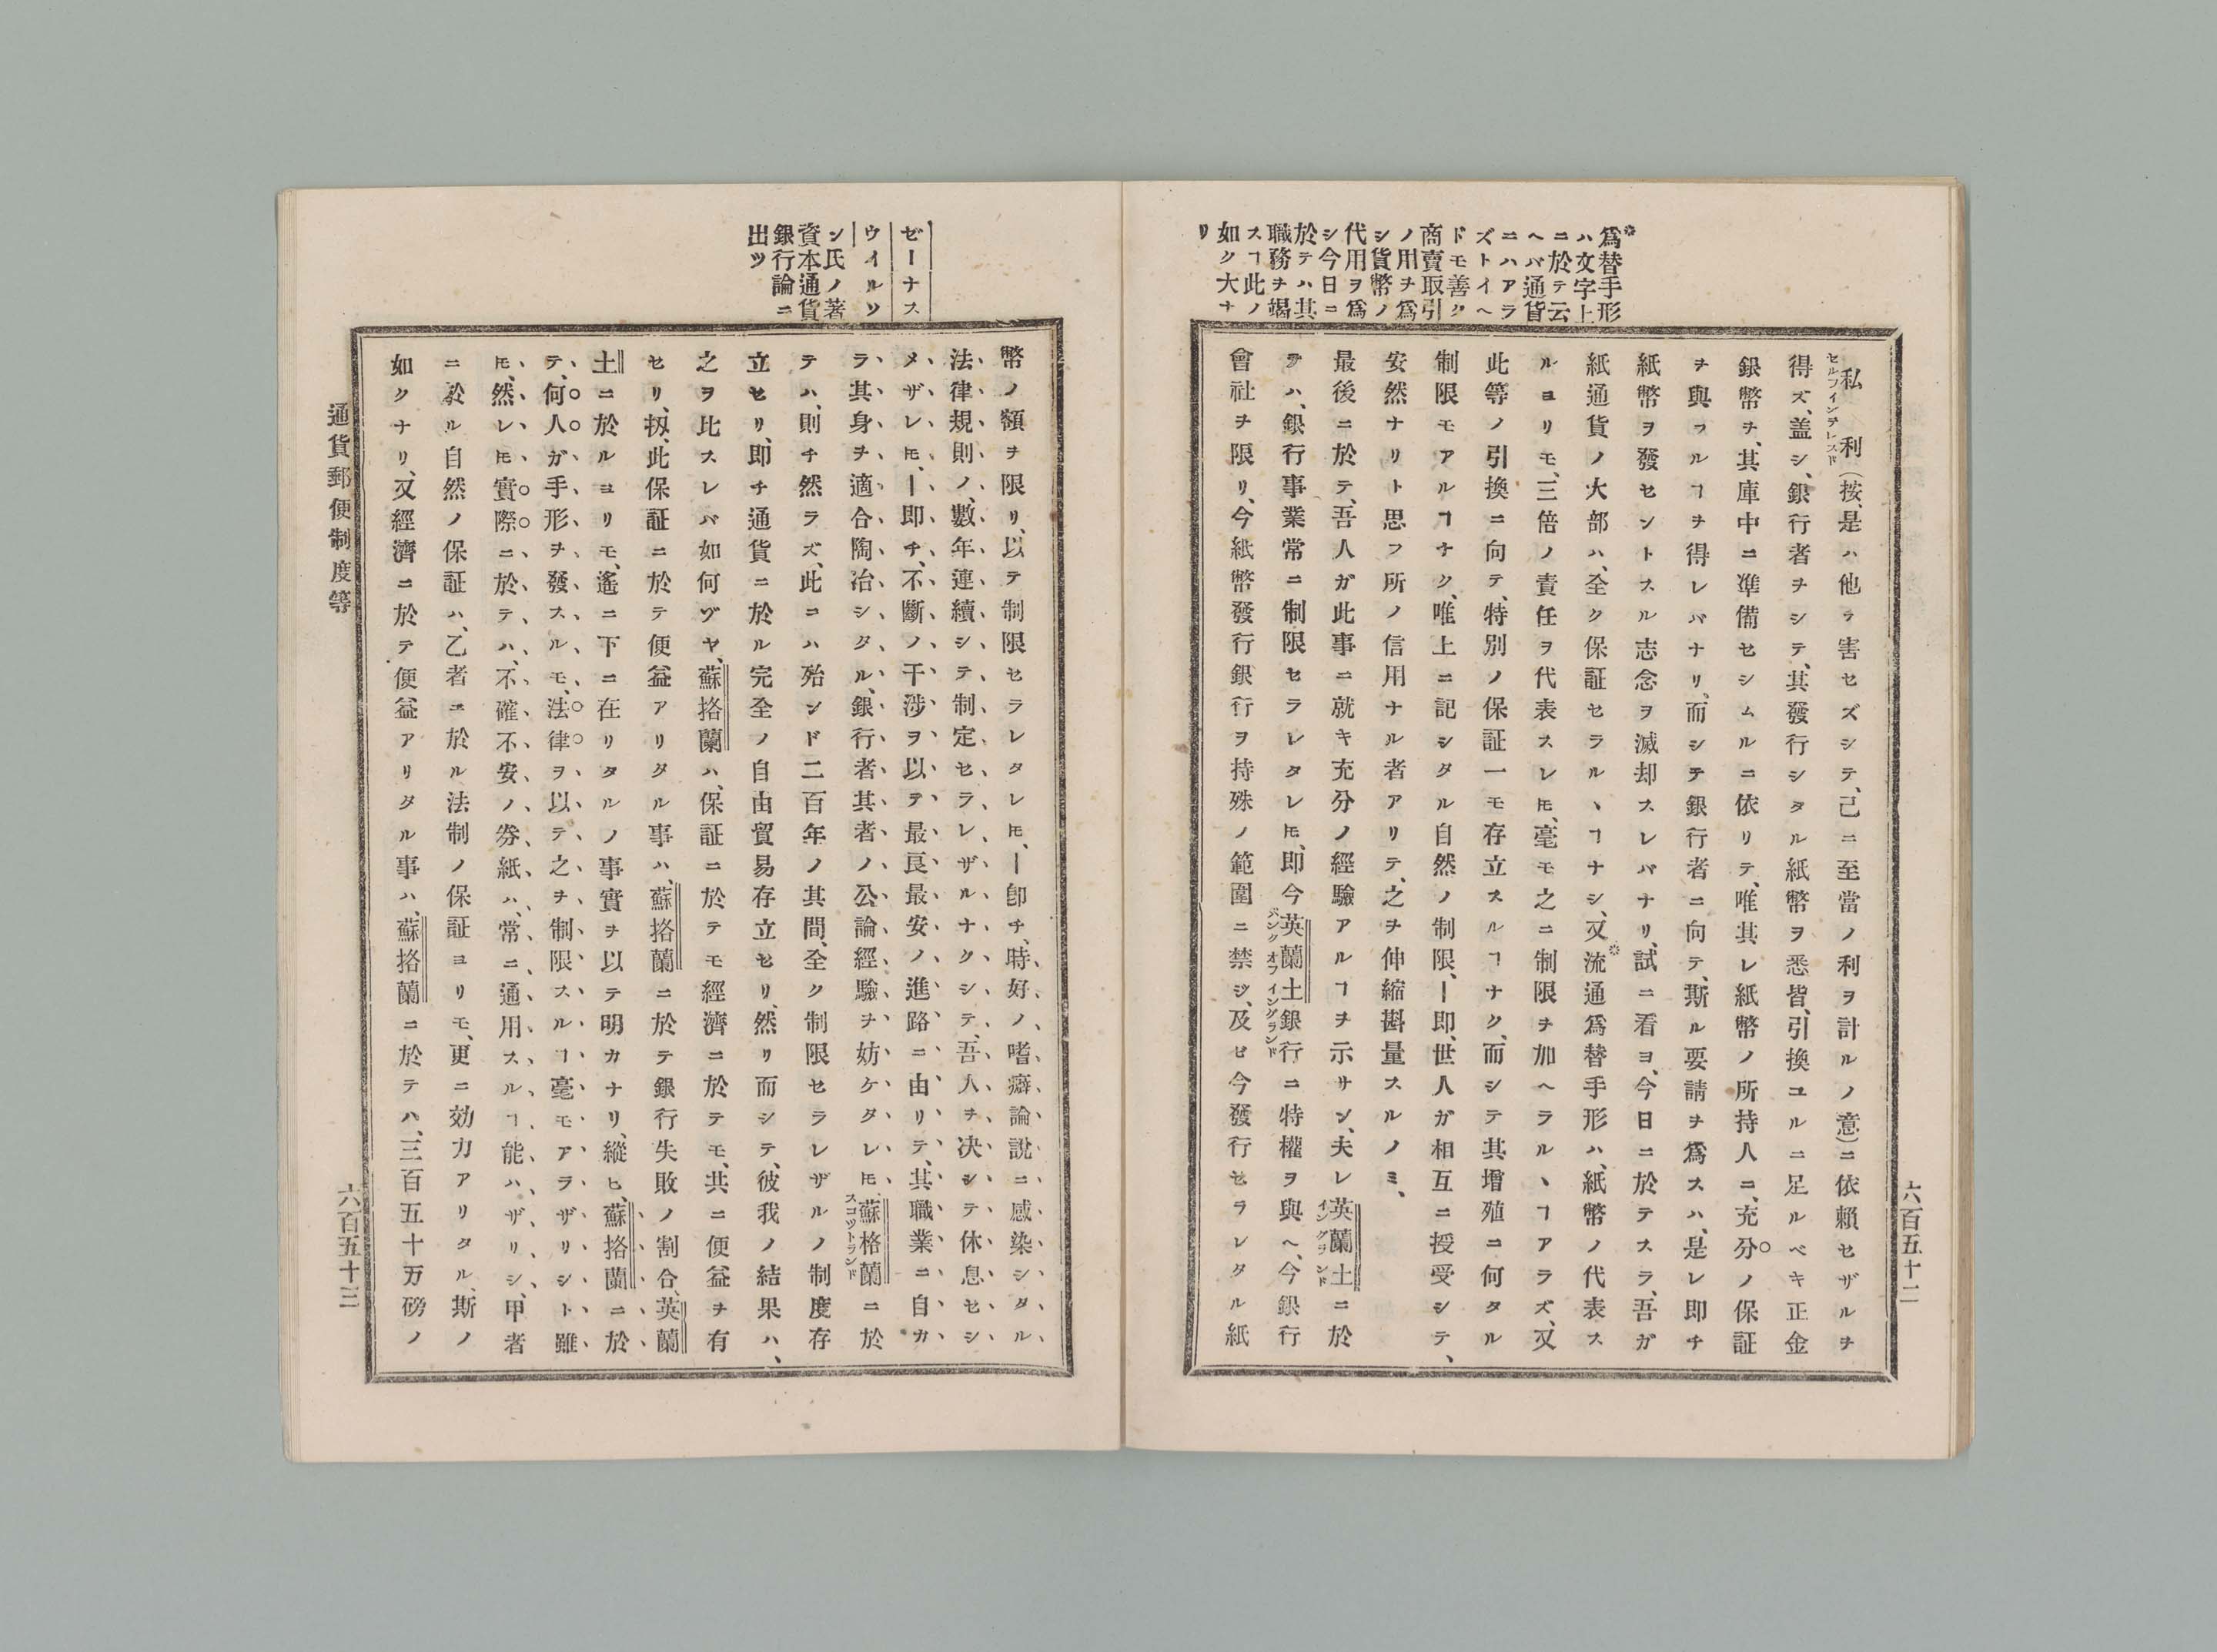 ※爲替手形
ハ文字上
ニ於テ云
ヘバ通貨
ニハアラ
ズトイヘ
ドモ善ク
商賣取引
ノ用ヲ爲
シ貨幣ノ
代用ヲ爲
シ今日ニ
於テハ其
職務ヲ竭
スヿ此ノ
如ク大ナ
リ
私利（按、是ハ他ヲ害セズシテ、己ニ至當ノ利ヲ計ルノ意）ニ依賴セザルヲ
セルフインテレスド
得ズ、盖シ、銀行者ヲシテ、其發行シタル紙幣ヲ悉皆、引換ユルニ足ルベキ正金
銀幣ヲ、其庫中ニ凖備セシムルニ依リテ、唯其レ紙幣ノ所持人ニ、充分ノ保証
ヲ與フルヿヲ得レバナリ、而シテ銀行者ニ向テ、斯ル要請ヲ爲スハ、是レ即チ
紙幣ヲ發セントスル志念ヲ滅却スレバナリ、試ニ看ヨ、今日ニ於テスラ、吾ガ
紙通貨ノ大部ハ、全ク保証セラルヽヿナシ、又※流通爲替手形ハ、紙幣ノ代表ス
ルヨリモ、三倍ノ責任ヲ代表スレ𪜈、毫モ之ニ制限ヲ加ヘラルヽヿアラズ、又
此等ノ引換ニ向テ、特別ノ保証一モ存立スルヿナク、而シテ其增殖ニ何タル
制限モアルヿナク、唯上ニ記シタル自然ノ制限、ー即、世人ガ相互ニ授受シテ、
安然ナリト思フ所ノ信用ナル者アリテ、之ヲ伸縮斟量スルノミ、
最後ニ於テ、吾人ガ此事ニ就キ充分ノ經驗アルヿヲ示サン、夫レ英蘭土ニ於
イングランド
テハ、銀行事業常ニ制限セラレタレ𪜈、即今英蘭土銀行ニ特權ヲ與ヘ、今銀行
バンクオフイングランド
會社ヲ限リ、今紙幣發行銀行ヲ持殊ノ範圍ニ禁ジ、及ビ今發行セラレタル紙
六百五十二
ゼーナス
ウイルソ
ン氏ノ著
資本通貨
銀行論ニ
出ヅ
幣ノ額ヲ限リ、以テ制限セラレタレ𪜈、ー即チ、時好ノ嗜癖論說ニ感染シタル
法律規則ノ、數年連續シテ制定セラレザルナクシテ、吾人ヲ决シテ休息セシ
メザレ𪜈、ー即チ、不斷ノ干涉ヲ以テ最良最安ノ進路ニ由リテ、其職業ニ自カ
ラ其身ヲ適合陶冶シタル、銀行者其者ノ公論經驗ヲ妨ケタレ𪜈、蘇格蘭ニ於
スコツトランド
テハ、則チ然ラズ、此ニハ殆ンド二百年ノ其間、全ク制限セラレザルノ制度存
立セリ、即チ通貨ニ於ル完全ノ自由貿易存立セリ、然リ而シテ、彼我ノ結果ハ、
之ヲ比スレバ如何ゾヤ、蘇挌蘭ハ、保証ニ於テモ經濟ニ於テモ、共ニ便益ヲ有
セリ、扨、此保証ニ於テ便益アリタル事ハ、蘇挌蘭ニ於テ銀行失敗ノ割合、英蘭
土ニ於ルヨリモ、遙ニ下ニ在リタルノ事實ヲ以テ明カナリ、縱ヒ、蘇挌蘭ニ於
テ、何人ガ手形ヲ發スルモ、法律ヲ以テ之ヲ制限スルヿ毫モアラザリシト雖
𪜈、然レ𪜈實際ニ於テハ、不確不安ノ劵紙ハ、常ニ通用スルヿ能ハザリシ、甲者
ニ於ル自然ノ保証ハ、乙者ニ於ル法制ノ保証ヨリモ、更ニ効力アリタル、斯ノ
如クナリ、又經濟ニ於テ便益アリタル事ハ、蘇挌蘭ニ於テハ、三百五十万磅ノ
通貨郵便制度等
六百五十三